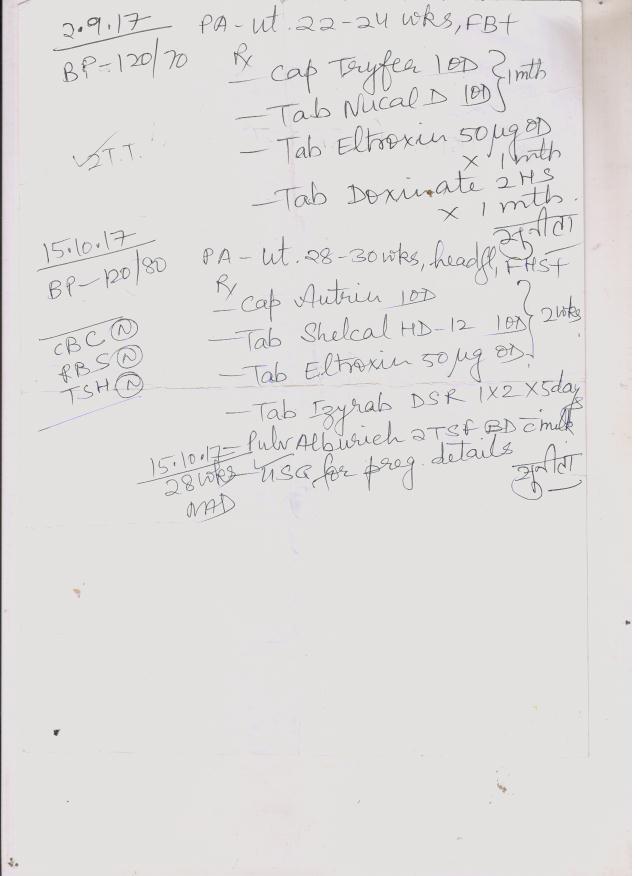 2.9.17 PA - ut. 22-24 wks, FB+
BP - 120/70 Rx
- Cap Tryfer 1OD } 1 mth
- Tab Nucal D 1OD
- Tab Eltroxin 50 µg OD
✓2 T.T. x 1 mth
- Tab Doxinate 2 HS
x 1 mth.
सुनीता
15.10.17 PA - ut. 28-30 wks, headfl, FHS+
BP - 120/80 Rx
- Cap Autrin 1OD } 2 wks
CBC (N) - Tab Shelcal HD-12 1OD
RBS (N) - Tab Eltroxin 50 µg OD
TSH (N)
- Tab Izyrab DSR 1x2 x 5 days
- Pulv Alburich 2TSf BD c̄ milk
15.10.17 - USG for preg. details
28 wks सुनीता
NAD